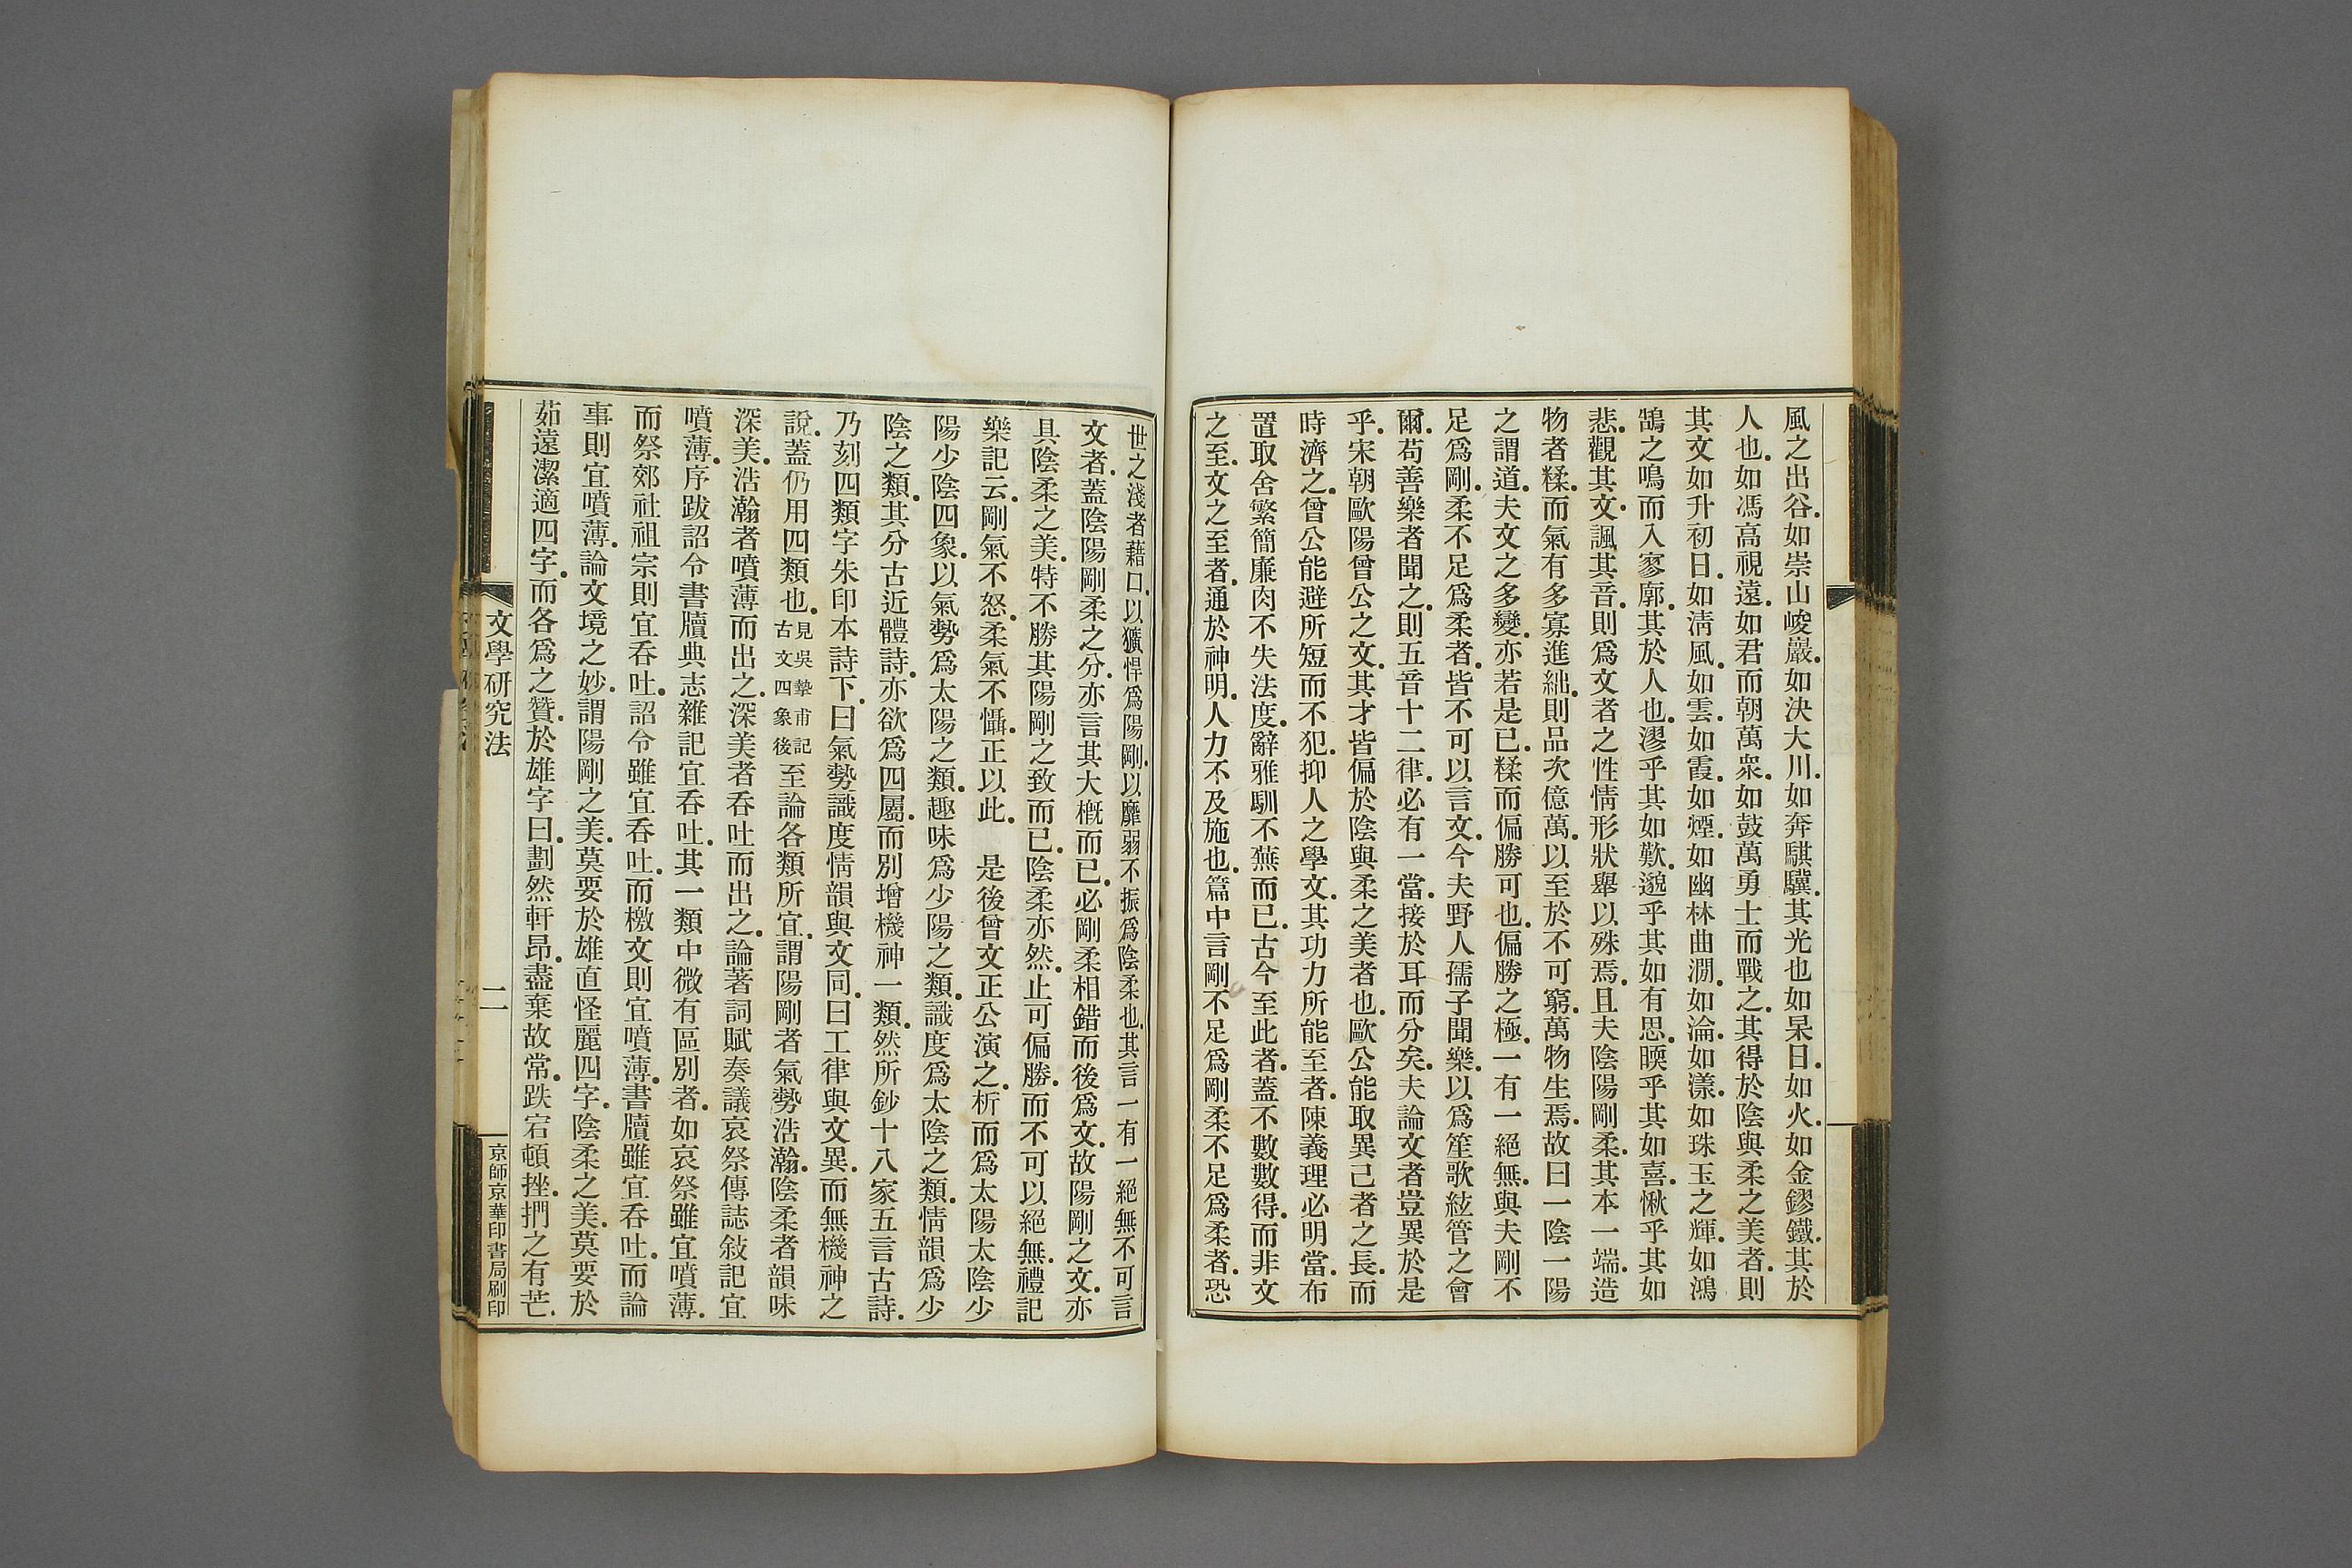 風之出谷.如崇山峻巖.如決大川.如奔騏驥.其光也如杲日.如火.如金鏐鐵.其於
人也.如馮高視遠.如君而朝萬衆.如鼓萬勇士而戰之.其得於陰與柔之美者.則
其文如升初日.如淸風.如雲.如霞.如煙.如幽林曲澗.如淪.如漾.如珠玉之輝.如鴻
鵠之鳴而入寥廓.其於人也.漻乎其如歎.邈乎其如有思.㬉乎其如喜.愀乎其如
悲.觀其文.諷其音.則爲文者之性情形狀舉以殊焉.且夫陰陽剛柔.其本一端.造
物者糅.而氣有多寡進絀.則品次億萬.以至於不可窮.萬物生焉.故曰一陰一陽
之謂道.夫文之多變.亦若是已.糅而偏勝可也.偏勝之極.一有一絕無.與夫剛不
足爲剛.柔不足爲柔者.皆不可以言文.今夫野人孺子聞樂.以爲笙歌絃管之會
爾.苟善樂者聞之.則五音十二律.必有一當.接於耳而分矣.夫論文者豈異於是
乎.宋朝歐陽曾公之文.其才皆偏於陰與柔之美者也.歐公能取異己者之長.而
時濟之.曾公能避所短而不犯.抑人之學文.其功力所能至者.陳義理必明當.布
置取舍繁簡廉肉不失法度.辭雅馴不蕪而已.古今至此者.蓋不數數得.而非文
之至.文之至者.通於神明.人力不及施也.篇中言剛不足爲剛柔不足爲柔者.恐
世之淺者藉口.以獷悍爲陽剛.以靡弱不振爲陰柔也.其言一有一絕無不可言
文者.蓋陰陽剛柔之分.亦言其大槪而已.必剛柔相錯而後爲文.故陽剛之文.亦
具陰柔之美.特不勝其陽剛之致而已.陰柔亦然.止可偏勝.而不可以絕無.禮記
樂記云.剛氣不怒.柔氣不懾.正以此.　是後曾文正公演之.析而爲太陽太陰少
陽少陰四象.以氣勢爲太陽之類.趣味爲少陽之類.識度爲太陰之類.情韻爲少
陰之類.其分古近體詩.亦欲爲四屬.而別增機神一類.然所鈔十八家五言古詩.
乃刻四類字朱印本詩下.曰氣勢識度情韻與文同.曰工律與文異.而無機神之
說.蓋仍用四類也.見吳摯甫記古文四象後至論各類所宜.謂陽剛者氣勢浩瀚.陰柔者韻味
深美.浩瀚者噴薄而出之.深美者吞吐而出之.論著詞賦奏議哀祭傳誌敍記宜
噴薄.序跋詔令書牘典志雜記宜吞吐.其一類中微有區別者.如哀祭雖宜噴薄.
而祭郊社祖宗則宜吞吐.詔令雖宜吞吐.而檄文則宜噴薄.書牘雖宜吞吐.而論
事則宜噴薄.論文境之妙.謂陽剛之美.莫要於雄直怪麗四字.陰柔之美.莫要於
茹遠潔適四字.而各爲之贊.於雄字曰.劃然軒昂.盡棄故常.跌宕頓挫.捫之有芒.
文學硏究法
二
京師京華印書局刷印